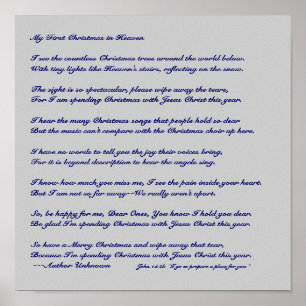 My First Christmas in Heaven
I see the countless Christmas trees around the world below.
With tiny lights like Heaven's stairs, reflecting on the snow.
The sight is so spectacular, please wipe away the tears,
For I am spending Christmas with Jesus Christ this year.
I hear the many Christmas songs that people hold so dear
But the music can't compare with the Christmas choir up here.
I have no words to tell you the joy their voices bring,
For it is beyond description to hear the angels sing.
I know how much you miss me, I see the pain inside your heart.
But I am not so far away--We really aren't apart.
So, be happy for me, Dear Ones, You know I hold you dear.
Be glad I'm spending Christmas with Jesus Christ this year.
So have a Merry Christmas and wipe away that tear,
Because I'm spending Christmas with Jesus Christ this year.
---Author Unknown John 14:2b. "I go to prepare a place for you."